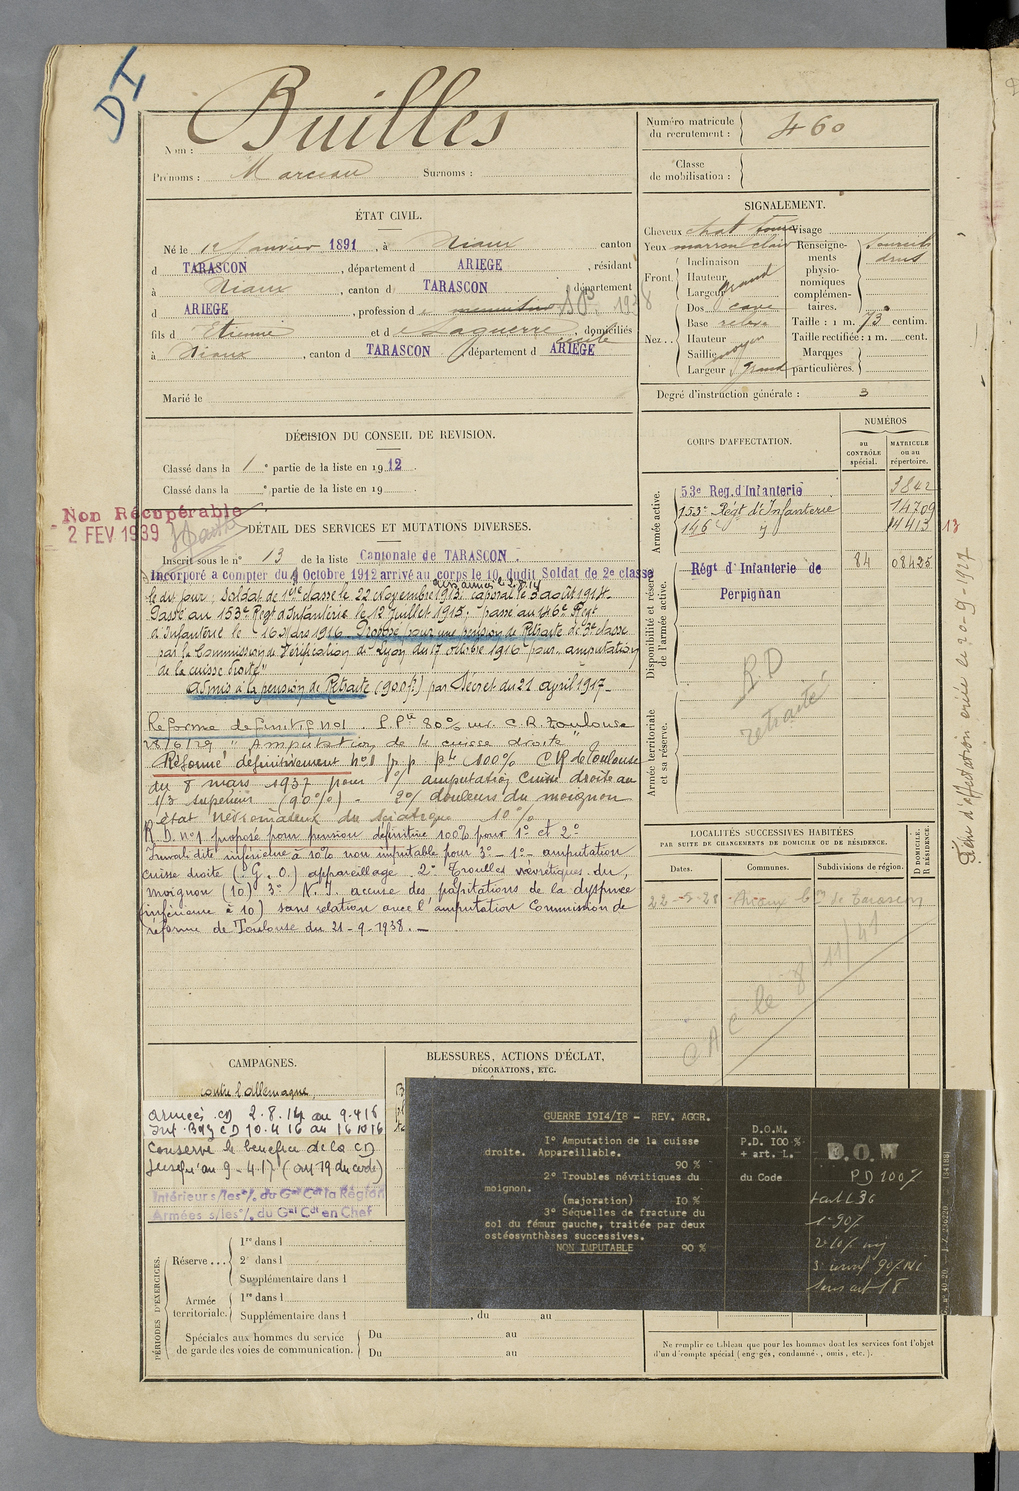 DI
Nom : Builles
Prénoms : Marceau Surnoms :
Numéro matricule du recrutement : 460
Classe de mobilisation :
ÉTAT CIVIL.
Né le 12 Janvier 1891, à Niaux canton
d TARASCON, département d ARIEGE, résidant
à Niaux, canton d TARASCON, département
d ARIEGE, profession d
fils d Etienne et d Laguerre, domiciliés
à Niaux, canton d TARASCON, département d ARIEGE
Marié le
SIGNALEMENT.
Cheveux chat Visage
Yeux marron clair
Front Inclinaison
Hauteur
Largeur grand
Nez Dos cave
Base relevé
Hauteur
Saillie moyen
Largeur grand
Renseignements physionomiques complémentaires. Sourcils drus
Taille : 1 m. 73 centim.
Taille rectifiée : 1 m. cent.
Marques particulières.
Degré d'instruction générale : 3
DÉCISION DU CONSEIL DE REVISION.
Classé dans la 1e partie de la liste en 1912.
Classé dans la e partie de la liste en 19
Non Récupérable
2 FEV 1939
DÉTAIL DES SERVICES ET MUTATIONS DIVERSES.
Inscrit sous le n° 13 de la liste Cantonale de TARASCON.
Incorporé a compter du 8 Octobre 1912 arrivé au corps le 10, dudit Soldat de 2e classe
le dit jour, Soldat de 1ère classe le 22 Novembre 1913. caporal le 5 août 1914.
Passé au 153e Régt d'Infanterie le 12 Juillet 1915; passé au 146e Régt
d'Infanterie le 16 Mars 1916. Proposé pour une pension de Retraite de 3e classe
par la Commission de Vérification de Lyon du 17 octobre 1916 pour "amputation
de la cuisse droite"
Admis à la pension de Retraite (900f) par Décret du 21 avril 1917.
Réforme définitif n°1. P.Pte 80% C.R. Toulouse
28/6/29 "Amputation de la cuisse droite"
Réformé définitivement n°1 p.p. pte 100% CR de Toulouse
du 8 mars 1937 pour 1° amputation cuisse droite au
1/3 supérieur (90%) - 2° douleurs du moignon
état névromateux du sciatique 10%
R.D. n°1 proposé pour pension définitive 100% pour 1° et 2°
Invalidité inférieure à 10% non imputable pour 3° - 1° - amputation
cuisse droite (G.O.) appareillage. 2° Troubles névritiques du
moignon (10) 3° N.I. accuse des palpitations de la dyspnée
(inférieure à 10) sans relation avec l'amputation Commission de
réforme de Toulouse du 21-9-1938.
CORPS D'AFFECTATION.
NUMÉROS
au CONTRÔLE spécial.
MATRICULE ou au répertoire.
Armée active.
53e Reg. d'Infanterie 3842
153e Régt d'Infanterie 14709
146 14413 13
Disponibilité et réserve de l'armée active.
Régt d'Infanterie de Perpignan 84 08425
RD
retraité
Armée territoriale et sa réserve.
LOCALITÉS SUCCESSIVES HABITÉES
PAR SUITE DE CHANGEMENTS DE DOMICILE OU DE RÉSIDENCE.
Dates. Communes. Subdivisions de région. D DOMICILE. R RÉSIDENCE.
22-5-28 Niaux Con de Tarascon
CAC le 8/11/41
Fiche d'affectation créée le 20-9-1927
CAMPAGNES.
contre l'allemagne,
Armées CD 2.8.14 au 9.4.16
Int. Bdg CD 10.4.16 au 16.10.16
Conserve le bénéfice de la CD
Jusqu'au 9-4-17 (art 19 du code)
Intérieur s/les% du Gal Cdt la Région
Armées s/les% du Gal Cdt en Chef
BLESSURES, ACTIONS D'ÉCLAT,
DÉCORATIONS, ETC.
GUERRE 1914/18 - REV. AGGR.
1° Amputation de la cuisse
droite. Appareillable.
90 %
2° Troubles névritiques du
moignon.
(majoration) 10 %
3° Séquelles de fracture du
col du fémur gauche, traitée par deux
ostéosynthèses successives.
NON IMPUTABLE 90 %
D.O.M.
P.D. 100 %
+ art. L.
du Code
D.O.M
PD 100%
+ art L 36
1° 90%
2° 10%
PÉRIODES D'EXERCICES.
Réserve... 1re dans l
2e dans l
Supplémentaire dans l
Armée territoriale. 1re dans l
Supplémentaire dans l , du au
Spéciales aux hommes du service de garde des voies de communication. Du au
Du au
Ne remplir ce tableau que pour les hommes dont les services font l'objet
d'un décompte spécial (engagés, condamnés, omis, etc.).